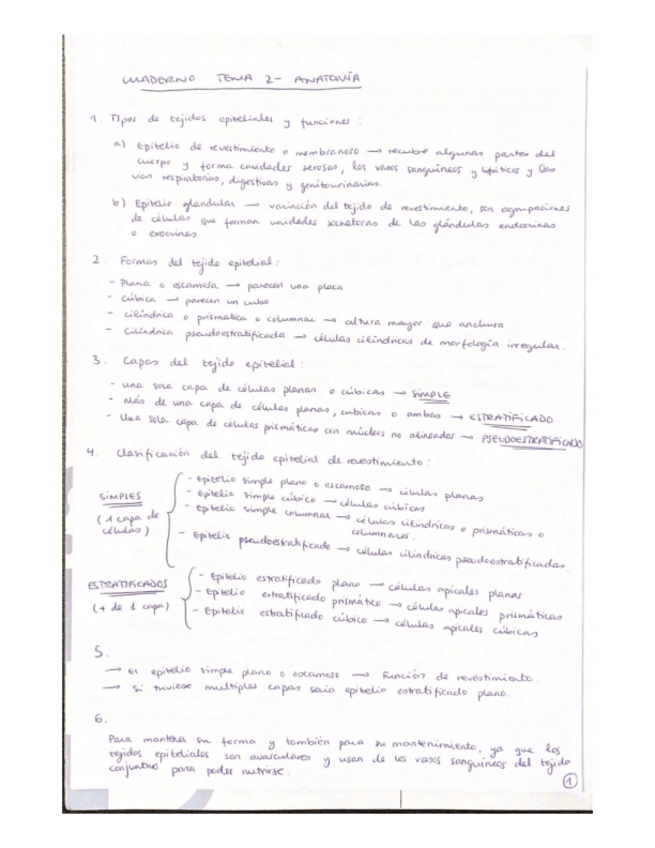 CUADERNO TEMA 2- ANATOMÍA
1. Tipos de tejidos epiteliales y funciones:
a) Epitelio de revestimiento o membranoso → recubre algunas partes del
cuerpo y forma cavidades serosas, los vasos sanguíneos y linfáticos y las
vías respiratorias, digestivas y genitourinarias.
b) Epitelio glandular → variación del tejido de revestimiento, son agrupaciones
de células que forman unidades secretoras de las glándulas endocrinas
o exocrinas.
2. Formas del tejido epitelial:
- Plana o escamosa → parecen una placa
- Cúbica → parecen un cubo
- cilíndrica o prismática o columnar → altura mayor que anchura
- Cilíndrica pseudoestratificada → células cilíndricas de morfología irregular.
3. Capas del tejido epitelial:
- Una sola capa de células planas o cúbicas → SIMPLE
- Más de una capa de células planas, cúbicas o ambas → ESTRATIFICADO
- Una sola capa de células prismáticas con núcleos no alineados → PSEUDOESTRATIFICADO
4. Clasificación del tejido epitelial de revestimiento:
SIMPLES
(1 capa de
células)
- Epitelio simple plano o escamoso → células planas
- Epitelio simple cúbico → células cúbicas
- Epitelio simple columnar → células cilíndricas o prismáticas o
columnares.
- Epitelio pseudoestratificado → células cilíndricas pseudoestratificadas.
ESTRATIFICADOS
(+ de 1 capa)
- Epitelio estratificado plano → células apicales planas
- Epitelio estratificado prismático → células apicales prismáticas
- Epitelio estratificado cúbico → células apicales cúbicas
5.
→ El epitelio simple plano o escamoso → Función de revestimiento.
→ Si tuviese multiples capas sería epitelio estratificado plano.
6.
Para mantener su forma y también para su mantenimiento, ya que los
tejidos epiteliales son avasculares y usan de los vasos sanguíneos del tejido
conjuntivo para poder nutrirse.
1